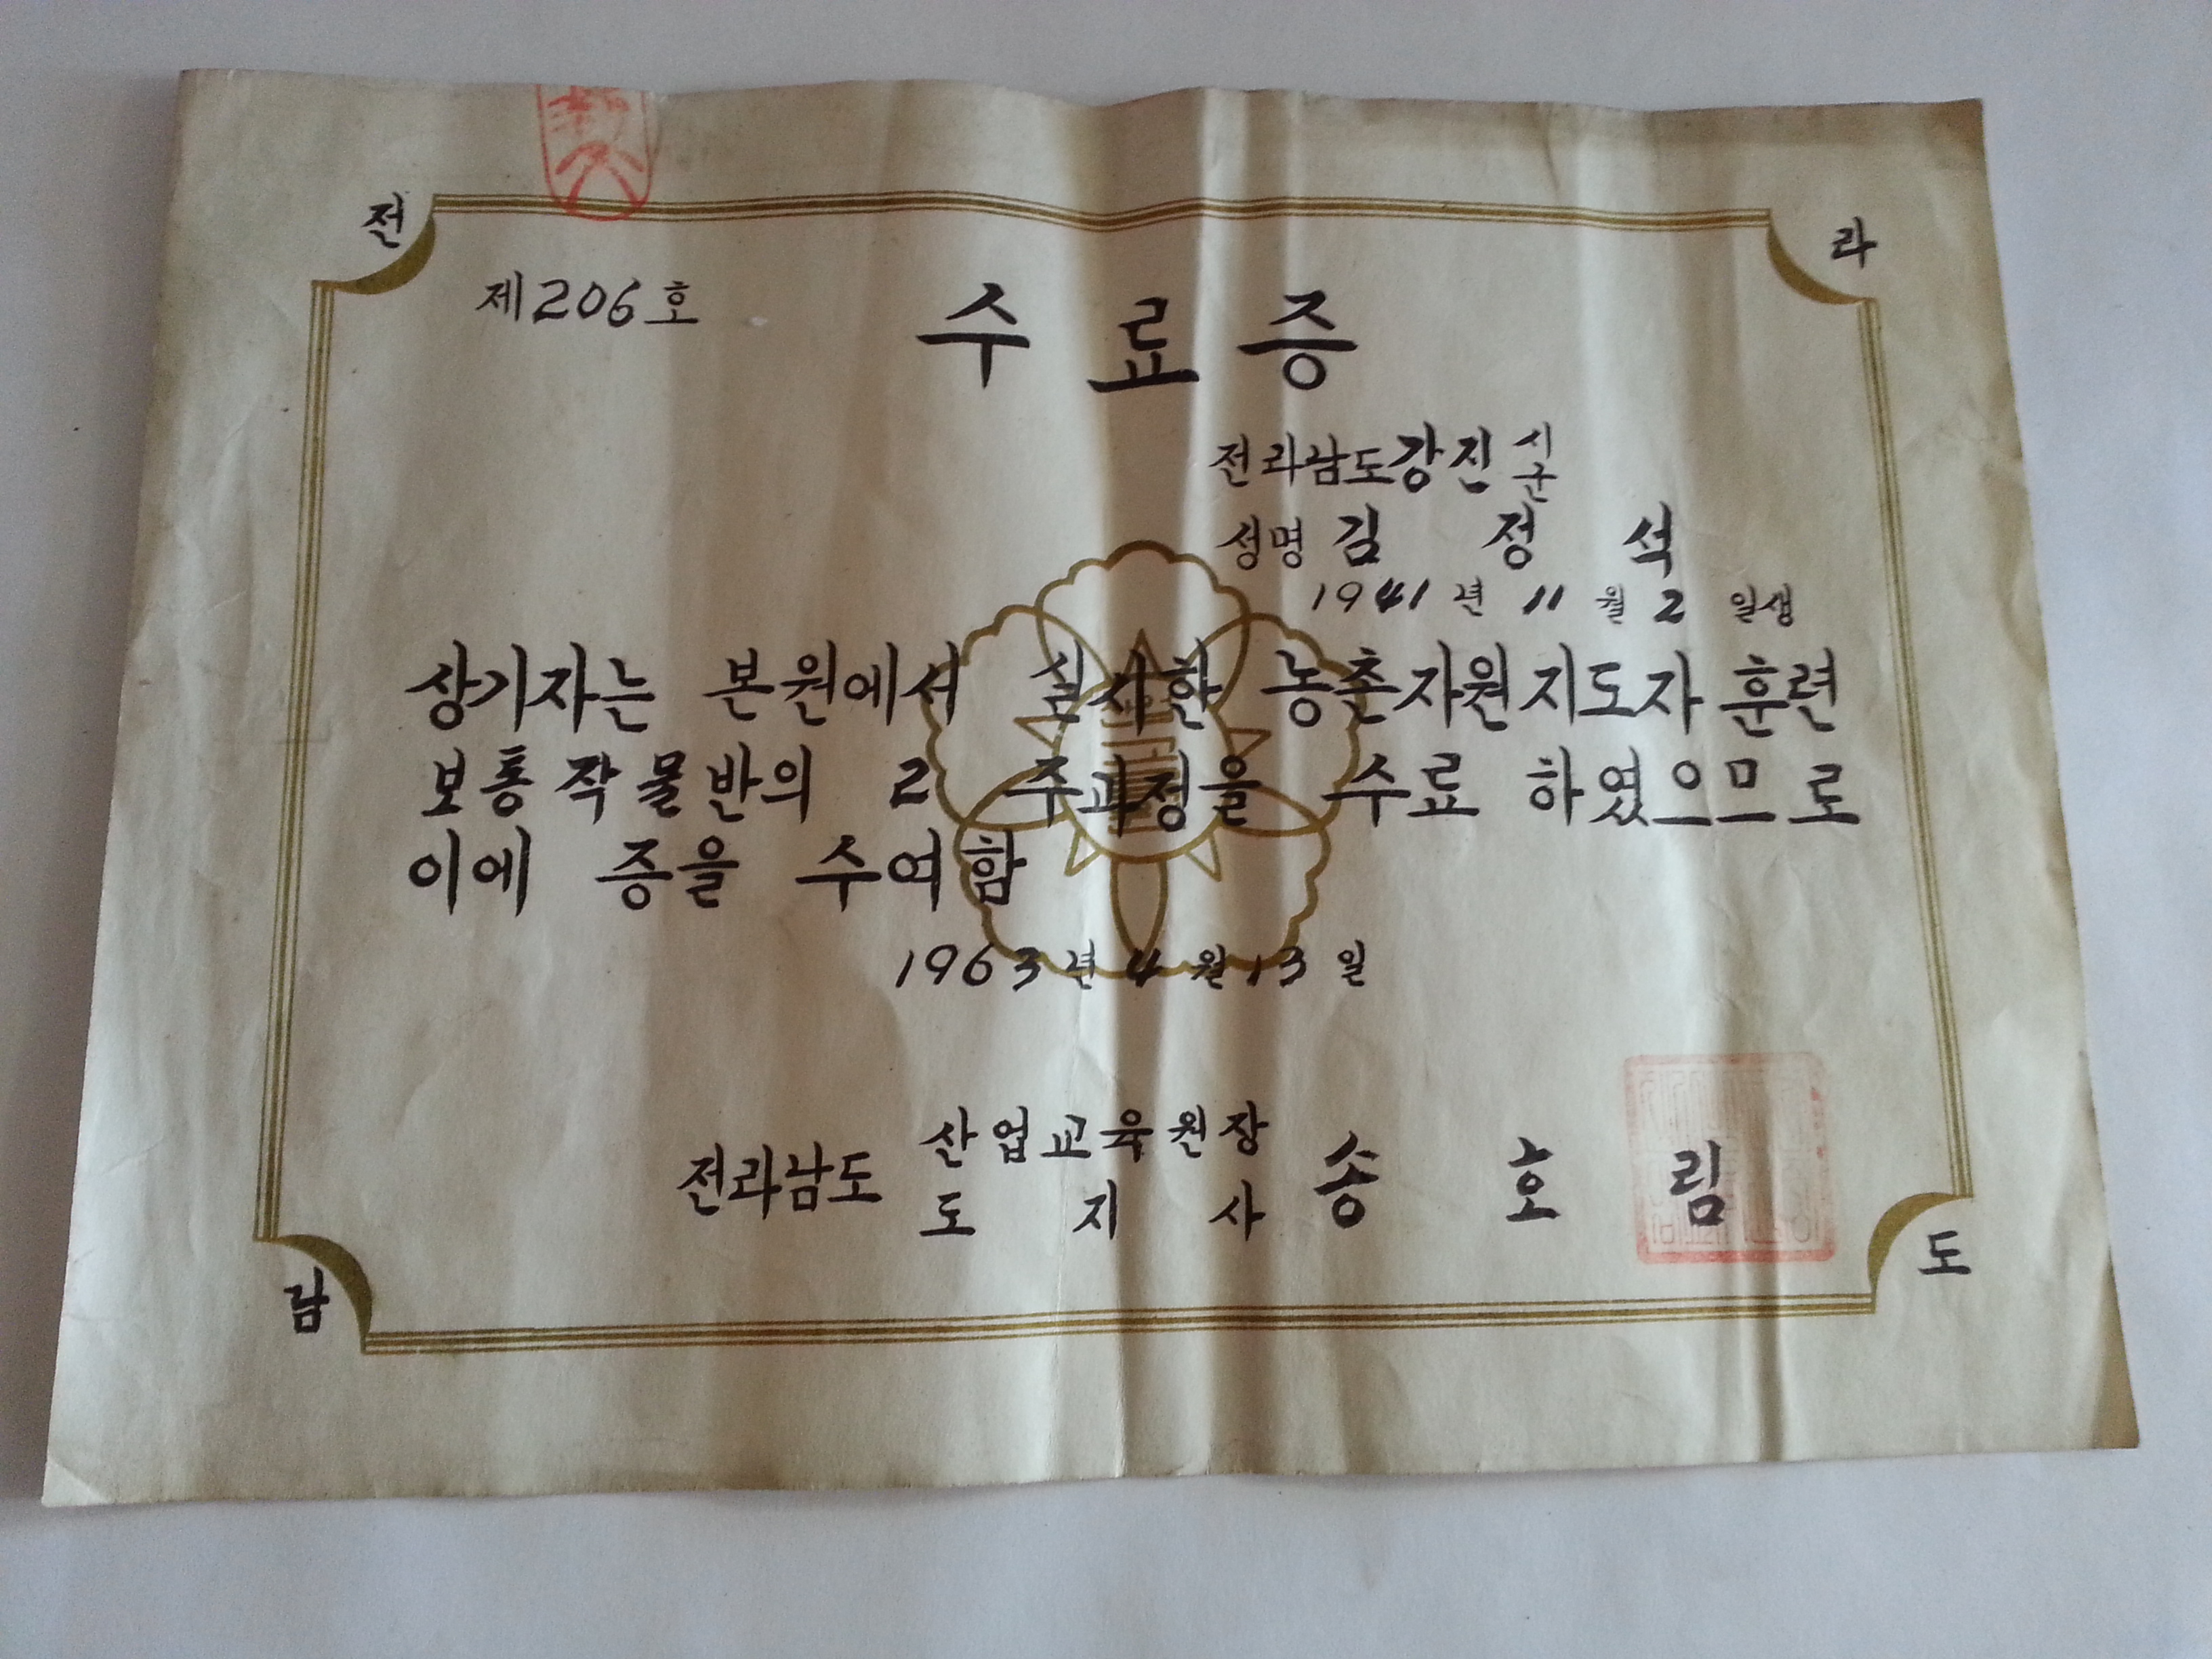 전 라
제206호
수료증
전라남도강진 시군
성명 김정석
1941년 11월 2일생
상기자는 본원에서 실시한 농촌자원지도자 훈련
보통작물반의 2 주과정을 수료 하였으므로
이에 증을 수여함
1963년 4월 13일
전라남도 산업교육원장
도지사 송호림
남 도